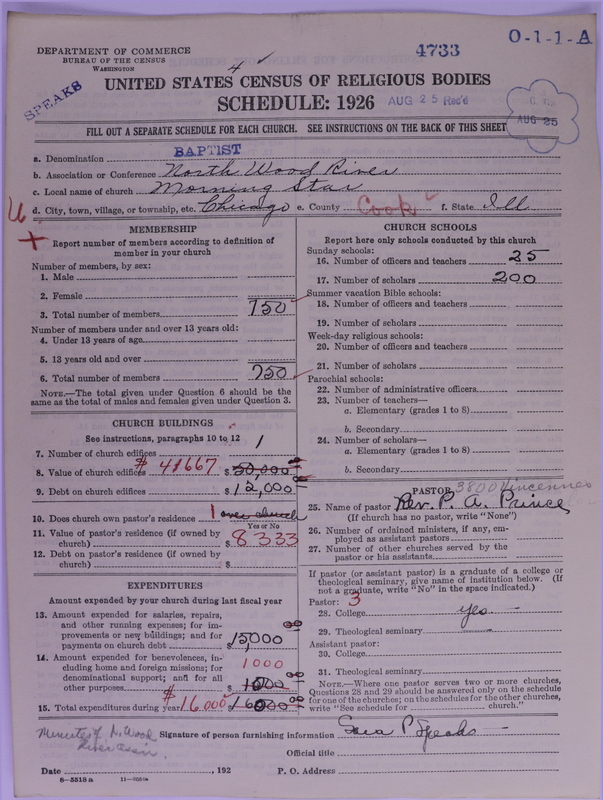 DEPARTMENT OF COMMERCE
BUREAU OF THE CENSUS
WASHINGTON
4733
O-1-1-A
4 ✓
SPEAKS
UNITED STATES CENSUS OF RELIGIOUS BODIES
SCHEDULE: 1926
AUG 25 Rec'd
AUG 25
FILL OUT A SEPARATE SCHEDULE FOR EACH CHURCH. SEE INSTRUCTIONS ON THE BACK OF THIS SHEET
a. Denomination BAPTIST
b. Association or Conference North Wood River
c. Local name of church Morning Star
d. City, town, village, or township, etc. Chicago e. County Cook f. State Ill
MEMBERSHIP
Report number of members according to definition of
member in your church
Number of members, by sex:
1. Male
2. Female
3. Total number of members 750
Number of members under and over 13 years old:
4. Under 13 years of age
5. 13 years old and over
6. Total number of members 750
NOTE.—The total given under Question 6 should be
same as the total of males and females given under Question 3.
CHURCH BUILDINGS
See instructions, paragraphs 10 to 12
7. Number of church edifices 1
8. Value of church edifices $ 41667 $ 50,000
9. Debt on church edifices $ 12,000
10. Does church own pastor's residence 1 over church
Yes or No
11. Value of pastor's residence (if owned by
church) $ 8333
12. Debt on pastor's residence (if owned by
church) $
EXPENDITURES
Amount expended by your church during last fiscal year
13. Amount expended for salaries, repairs,
and other running expenses; for im-
provements or new buildings; and for
payments on church debt $ 15000
14. Amount expended for benevolences, in-
cluding home and foreign missions; for
denominational support; and for all
other purposes 1000 $ 1000
15. Total expenditures during year $ 16,000 $ 16000
CHURCH SCHOOLS
Report here only schools conducted by this church
Sunday schools:
16. Number of officers and teachers 25
17. Number of scholars 200
Summer vacation Bible schools:
18. Number of officers and teachers
19. Number of scholars
Week-day religious schools:
20. Number of officers and teachers
21. Number of scholars
Parochial schools:
22. Number of administrative officers
23. Number of teachers—
a. Elementary (grades 1 to 8)
b. Secondary
24. Number of scholars—
a. Elementary (grades 1 to 8)
b. Secondary
PASTOR 3800 Vincennes
25. Name of pastor Rev. P. A. Prince
(If church has no pastor, write "None")
26. Number of ordained ministers, if any, em-
ployed as assistant pastors
27. Number of other churches served by the
pastor or his assistants
If pastor (or assistant pastor) is a graduate of a college or
theological seminary, give name of institution below. (If
not a graduate, write "No" in the space indicated.)
Pastor: 3
28. College yes
29. Theological seminary
Assistant pastor:
30. College
31. Theological seminary
NOTE.—Where one pastor serves two or more churches,
Questions 28 and 29 should be answered only on the schedule
for one of the churches; on the schedules for the other churches,
write "See schedule for church."
Minutes of N. Wood
River Assn.
Signature of person furnishing information P Speaks
Official title
Date , 192 P. O. Address
8-5518 a